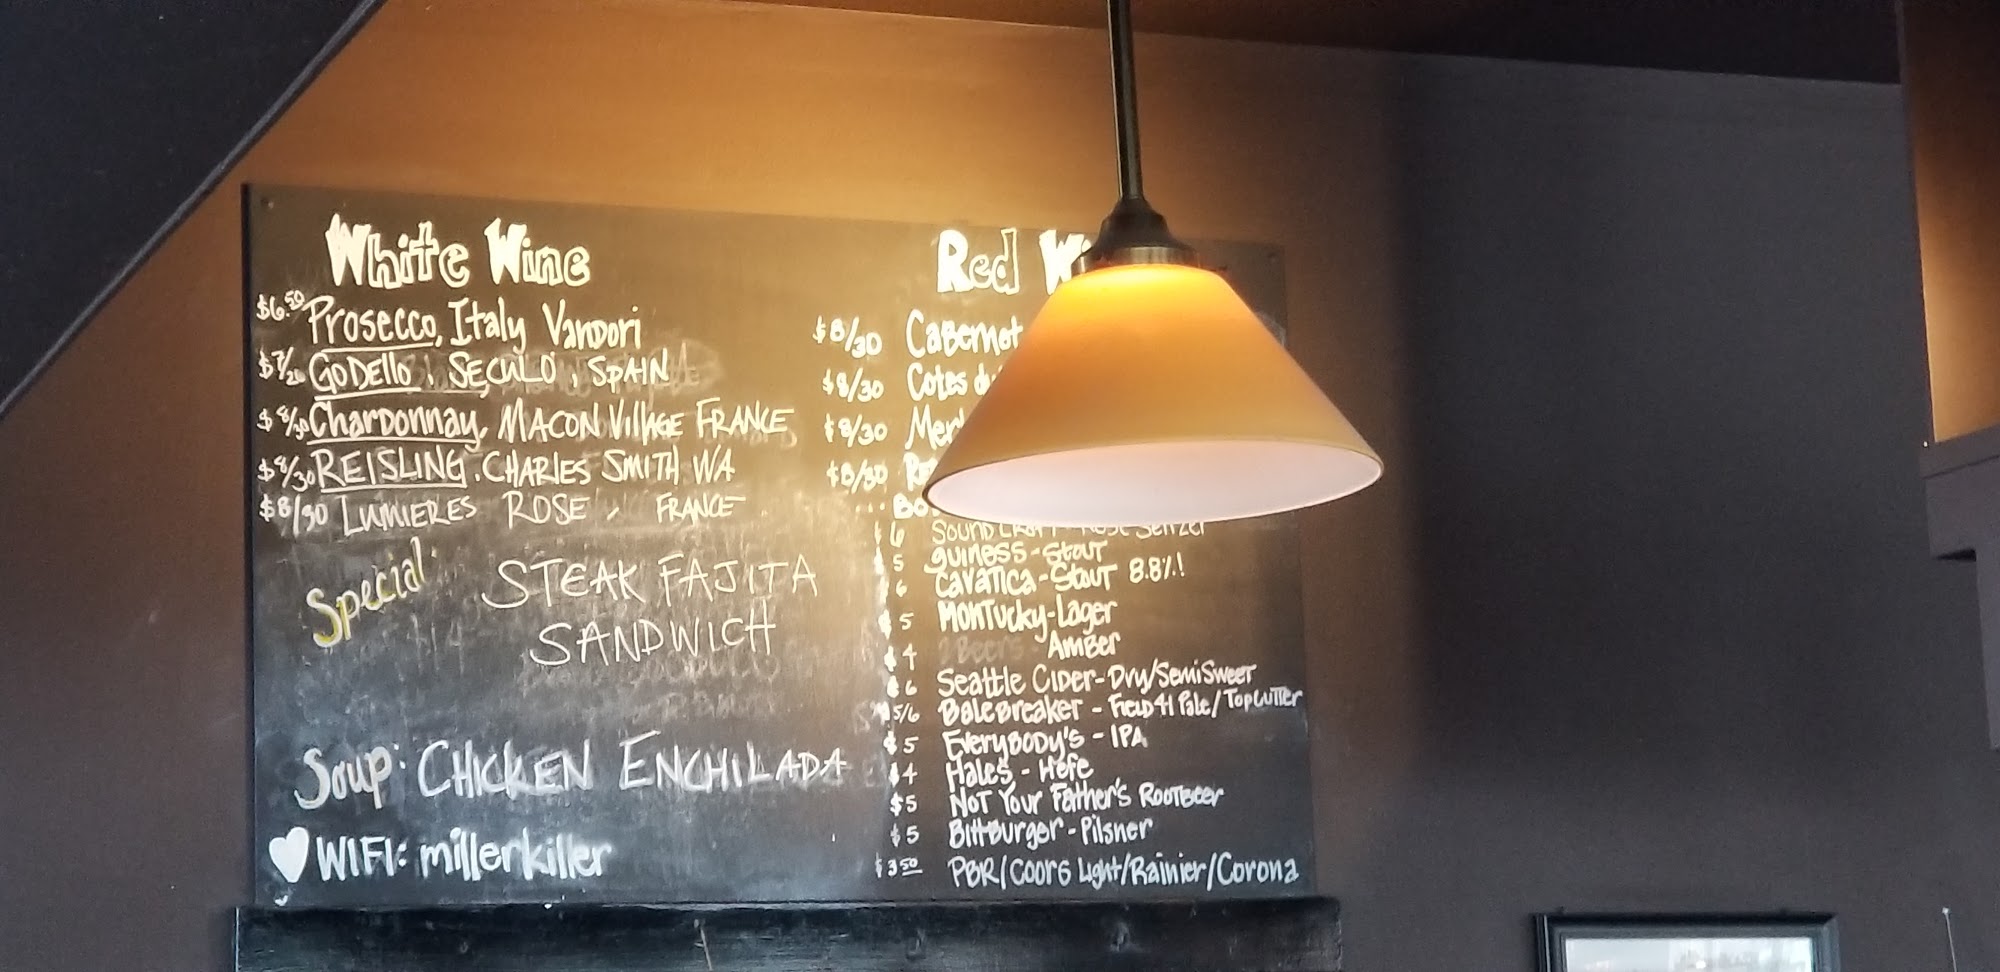 White Wine
$6.50 Prosecco, Italy Vandori
$7/28 GODELLO, SECULO, SPAIN
$8/30 Chardonnay, MACON VillAGE FRANCE
$8/30 REISLING, CHARLES SMITH WA
$8/30 LUMIERES ROSE, FRANCE
Special:
STEAK FAJITA
SANDWICH
Soup: CHICKEN ENCHILADA
WIFI: millerkiller
Red
$8/30 Cabernet
$8/30 Cotes
$8/30
$8/30
$6 SOUND
$5 guiness-stout
6 Cavatica-Stout 8.8%!
$5 MONTucky-Lager
$4 2 Beers - Amber
$6 Seattle Cider-Dry/SemiSweet
$5/6 BaleBreaker - Field 41 Pale/TopCutter
$5 EveryBODY's - IPA
$4 Hales - Hefe
$5 NOT Your Father's ROOTBeer
$5 BittBurger-Pilsner
$3.50 PBR/Coors Light/Rainier/Corona